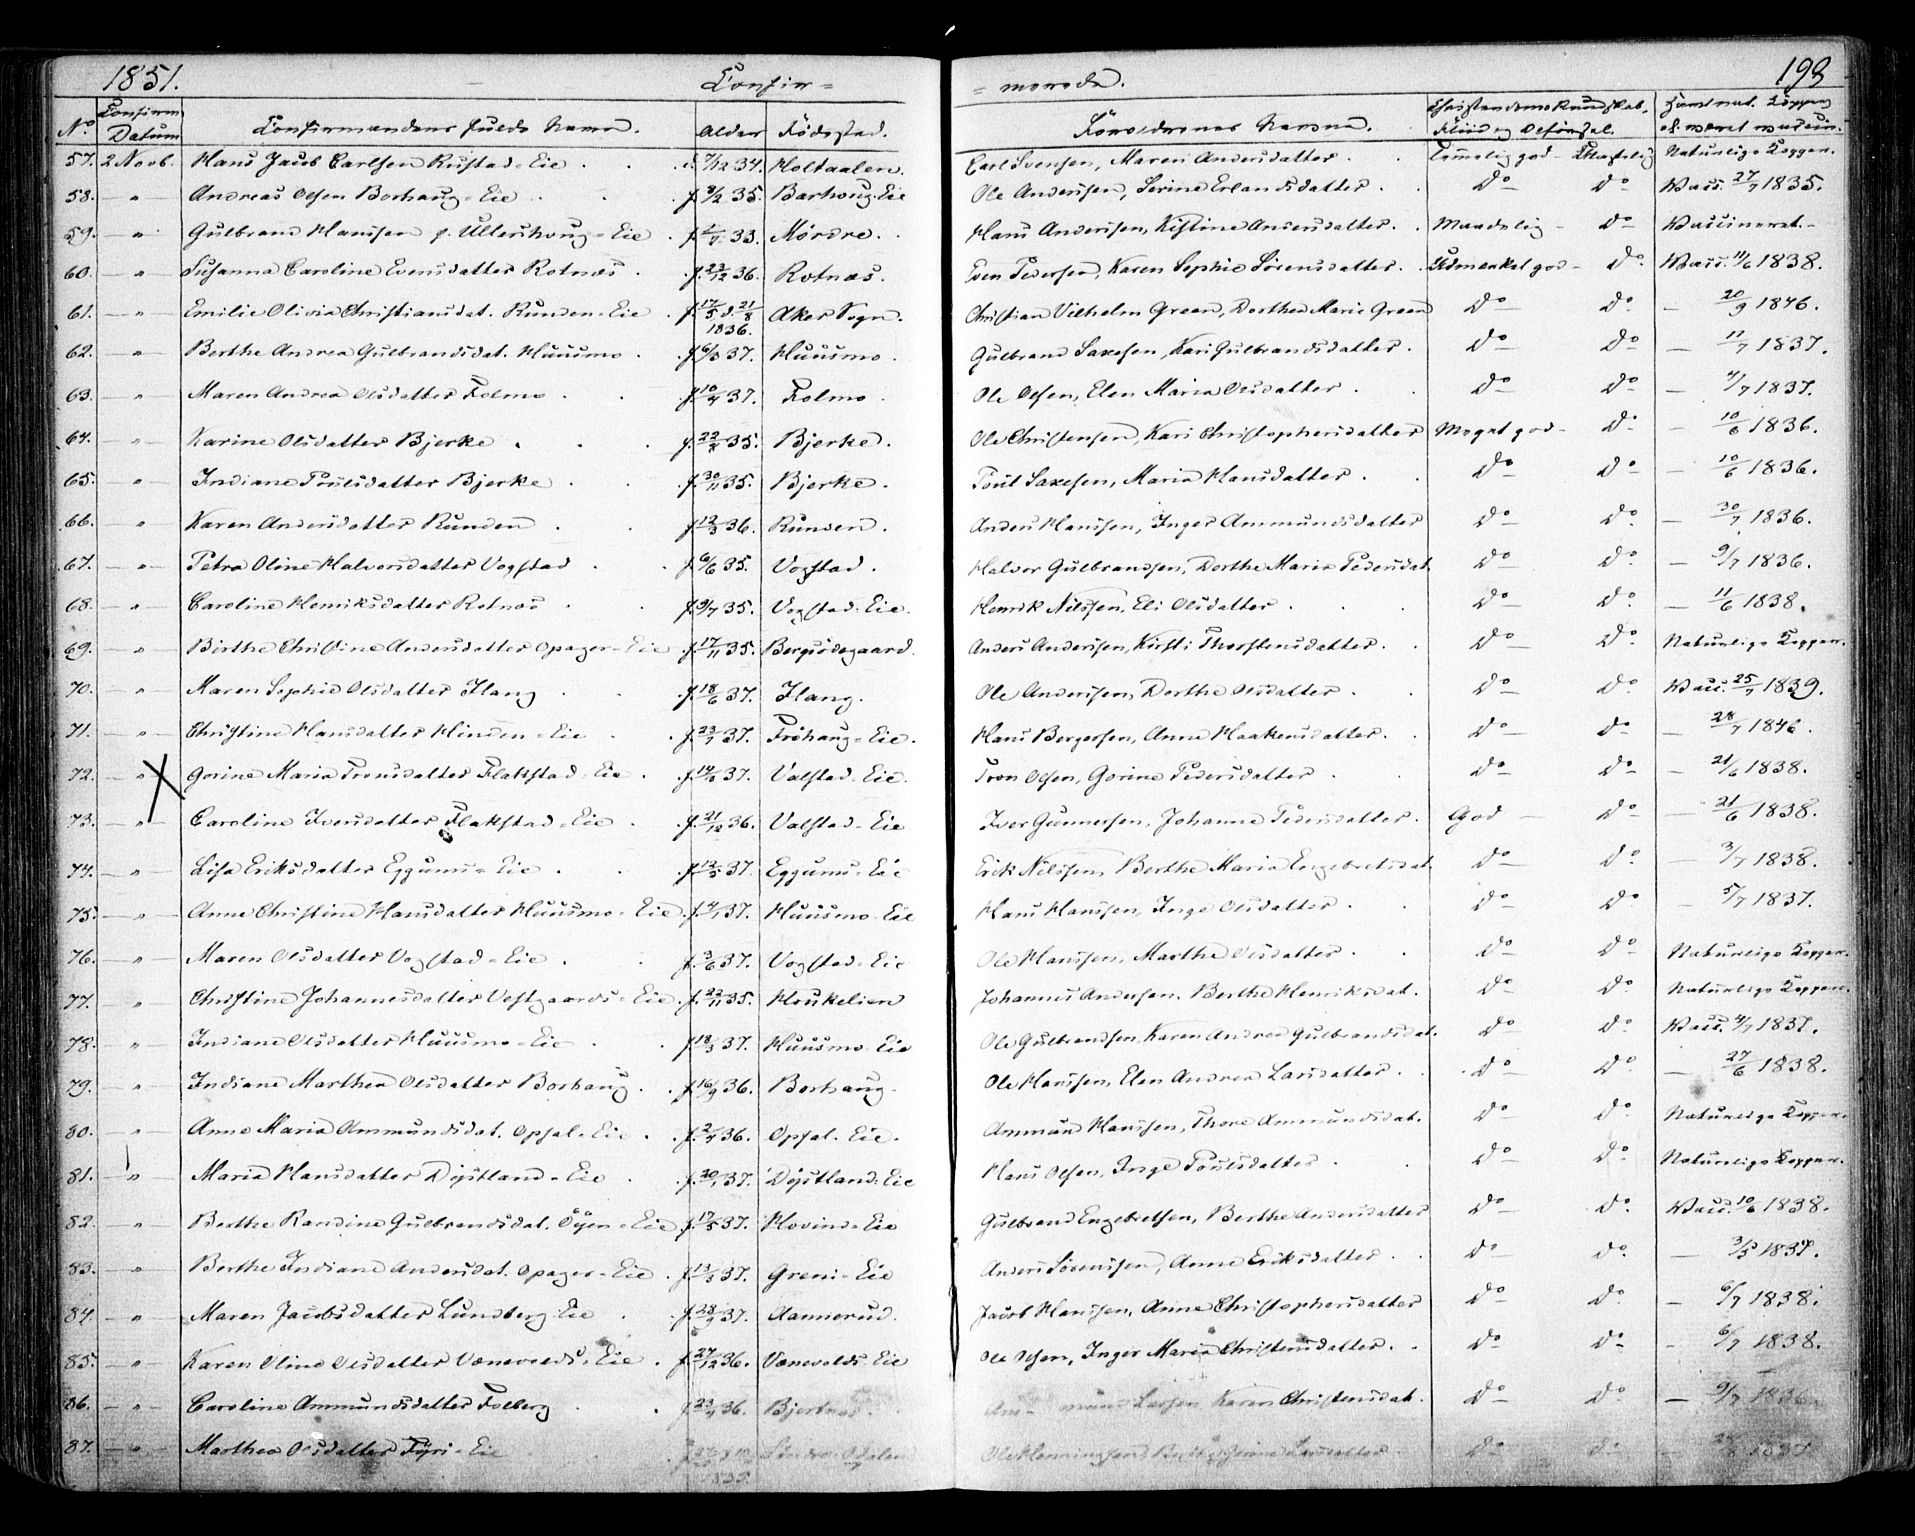 1851. Confir= =merede. 199
No Confirm. Datum Confirmandens fulde Navn. Alder Fødested. Foreldrenes Navne. Christendoms Kundskab, Flid og Opførsel. Havt nat. Kopper el. været vaccin.
57. 2 Novb. Hans Jacob Carlsen Rustad-Eie d. 7/12 34. Holtaalen. Carl Svensen, Maren Andersdatter Temmelig god - Naturlige Kopper.
58. -"- Andreas Olsen Borhaug-Eie f. 35. Barhoug-Eie Ole Andersen, Serine Erlandsdatter Do Do Vacc. 27/7 1835.
59. -"- Gulbrand Hansen p. Ullershoug-Eie 33. Mørdre. Hans Andersen, Kistine Andersdatter Maadelig - Do Vaccineret.
60. -"- Susanna Caroline Evensdatter Rotnes f. 23/12 36. Rotnes. Even Pedersen, Karen Sophie Sørensdatter Udmerket god - Do Vacc. 11/6 1838.
61. -"- Emilie Olivia Christiansdat. Runden-Eie f. 17/5 d. 21/8 1836. Aker Sogn. Christian Vilhelm Green, Dorthea Marie Green Do Do - 20/9 1846.
62. " Berthe Andrea Gulbrandsdat. Huusmo f. 6/3 37. Huusmo. Gulbrand Saxesen, Kari Gulbrandsdatter Do Do - 11/7 1837.
63. -"- Maren Andrea Olsdatter Folmo 37. Folmo Ole Olsen, Elen Maria Olsdatter Do Do - 4/7 1837.
64. " Karine Olsdatter Bjerke 35. Bjerke. Ole Christensen, Kari Christophersdatter Meget god - Do - 10/6 1836.
65. " Indiane Poulsdatter Bjerke f. 30/11 35. Bjerke. Poul Saxesen, Maria Hansdatter Do Do - 10/6 1836.
66. " Karen Andersdatter Runden f. 12/3 36. Runden. Anders Hansen, Inger Ammundsdatter Do Do - 30/7 1836.
67. -"- Petra Oline Halvorsdatter Vogstad f. 6/6 35. Vogstad. Halvor Gulbrandsen, Dorthe Maria Pedersdat. Do Do - 9/7 1836.
68. -"- Caroline Henriksdatter Rotnes f. 9/7 35. Vogstad-Eie. Henrik Nilssen, Eli Olsdatter Do Do - 11/6 1838.
69. -"- Birthe Christine Andersdatter Opager-Eie f. 17/11 35. Bergsødegaard. Anders Andersen, Kirsti Thorstensdatter Do Do Naturlige Kopper.
70. " Maren Sophie Olsdatter Ilang f. 18/6 37. Ilang. Ole Andersen, Dorthe Olsdatter Do Do Vacc. 25/7 1839.
71. " Christine Hansdatter Hinden-Eie f. 23/7 37. Frøhaug-Eie. Hans Bergersen, Anne Haakensdatter Do Do - 28/7 1846.
72. -"- Gorine Maria Tronsdatter Flakstad-Eie 37. Valstad-Eie. Tron Olsen, Gorine Pedersdatter Do Do - 21/6 1838.
73. -"- Caroline Iversdatter Flakstad-Eie f. 21/12 36. Valstad-Eie Iver Gunnersen, Johanne Pedersdatter God - Do - 21/6 1838.
74. -"- Lisa Eriksdatter Eggum-Eie f. 12/5 37. Eggums-Eie Erik Nilssen, Berthe Maria Engebretsdat. Do Do 3/7 1838.
75. -"- Anne Christine Hansdatter Huusmo-Eie 37. Huusmo-Eie Hans Hansen, Inge Olsdatter Do Do - 5/7 1837.
76. " Maren Olsdatter Vogstad-Eie f. 3/6 37. Vogstad-Eie Ole Hansen, Marthe Olsdatter Do Do Naturlige Kopper.
77. " Christine Johannesdatter Vestgaards-Eie f. 22/11 35. Houkelien Johannes Andersen, Berthe Henriksdat. Do Do Naturlige Kopper.
78. " Indiane Olsdatter Huusmo-Eie f. 18/3 37. Huusmo-Eie Ole Gulbrandsen, Karen Andrea Gulbrandsdat. Do Do Vacc. 4/7 1837.
79. " Indiane Marthea Olsdatter Borhaug f. 16/9 36. Borhaug Ole Hansen, Elen Andrea Larsdatter Do Do - 27/6 1838.
80. " Anne Maria Ammundsdat. Opsal-Eie 36. Opsal-Eie. Ammund Hansen, Thore Ammundsdat. Do Do Naturlige Kopper.
81. -"- Maria Hansdatter Dystland-Eie 37. Dystland-Eie Hans Olsen, Inge Poulsdatter Do Do Naturlige Kopper.
82. -"- Berthe Randine Gulbrandsdat. Öyen-Eie f. 17/5 37. Hovind-Eie Gulbrand Engebretsen, Berthe Andersdatter Do Do Vacc. 10/6 1838.
83. " Berthe Indiane Andersdat. Opager-Eie f. 13/3 37. Greni-Eie Anders Sørensen, Anne Eriksdatter Do Do - 3/5 1837.
84. -"- Maren Jacobsdatter Lundberg-Eie 37. Aannerud. Jacob Hansen, Anne Christophersdatter Do Do - 6/7 1838.
85. -"- Karen Oline Olsdatter Venevolds-Eie f. 27/12 36. Venevolds-Eie Ole Olsen, Inger Maria Christensdatter Do Do - 6/7 1838.
86. -"- Caroline Ammundsdatter Folberg 36. Bjertnes. Ammund Larsen Karen Christensdat. Do Do - 9/7 1836.
87. -"- Marthea Olsdatter Fyri-Eie Ole Henningsen Do Do